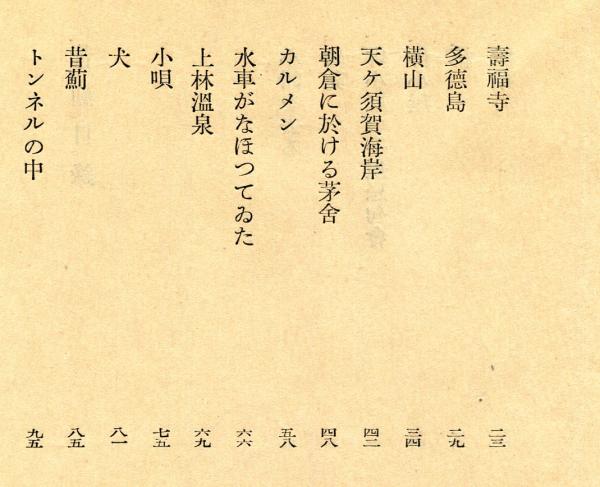 壽福寺 二三
多德島 二九
橫山 三四
天ケ須賀海岸 四二
朝倉に於ける茅舍 四八
カルメン 五八
水車がなほつてゐた 六六
上林溫泉 六九
小唄 七五
犬 八一
昔薊 八五
トンネルの中 九五